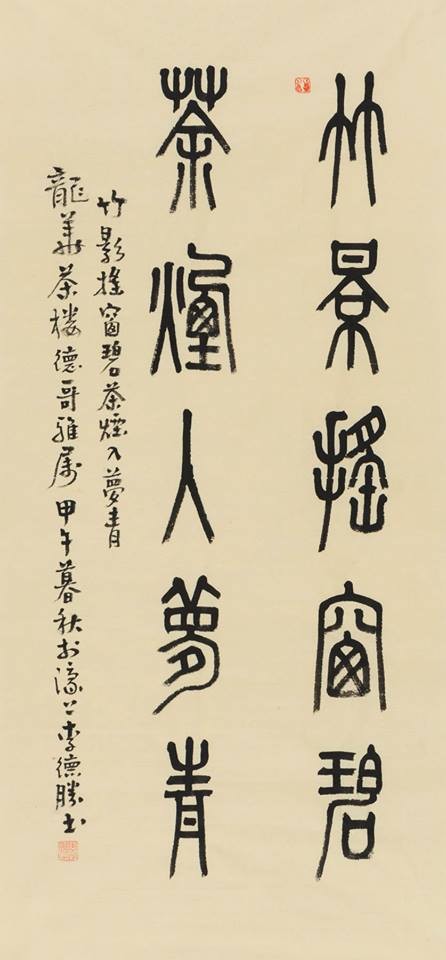 竹景搖窗碧
茶煙入夢青
竹影搖窗碧茶煙入夢青
龍華茶樓德哥雅屬 甲午暮秋於濠上李德勝書